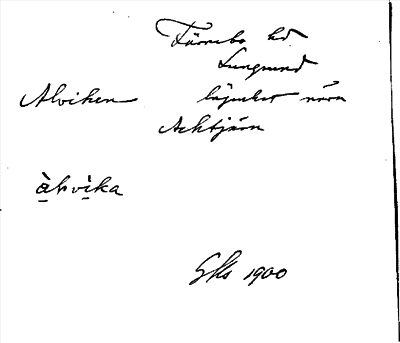 Färnebo hd
Lungsund
Alviken lägenhet nära
Acktjärn
àlvika
GKs 1900